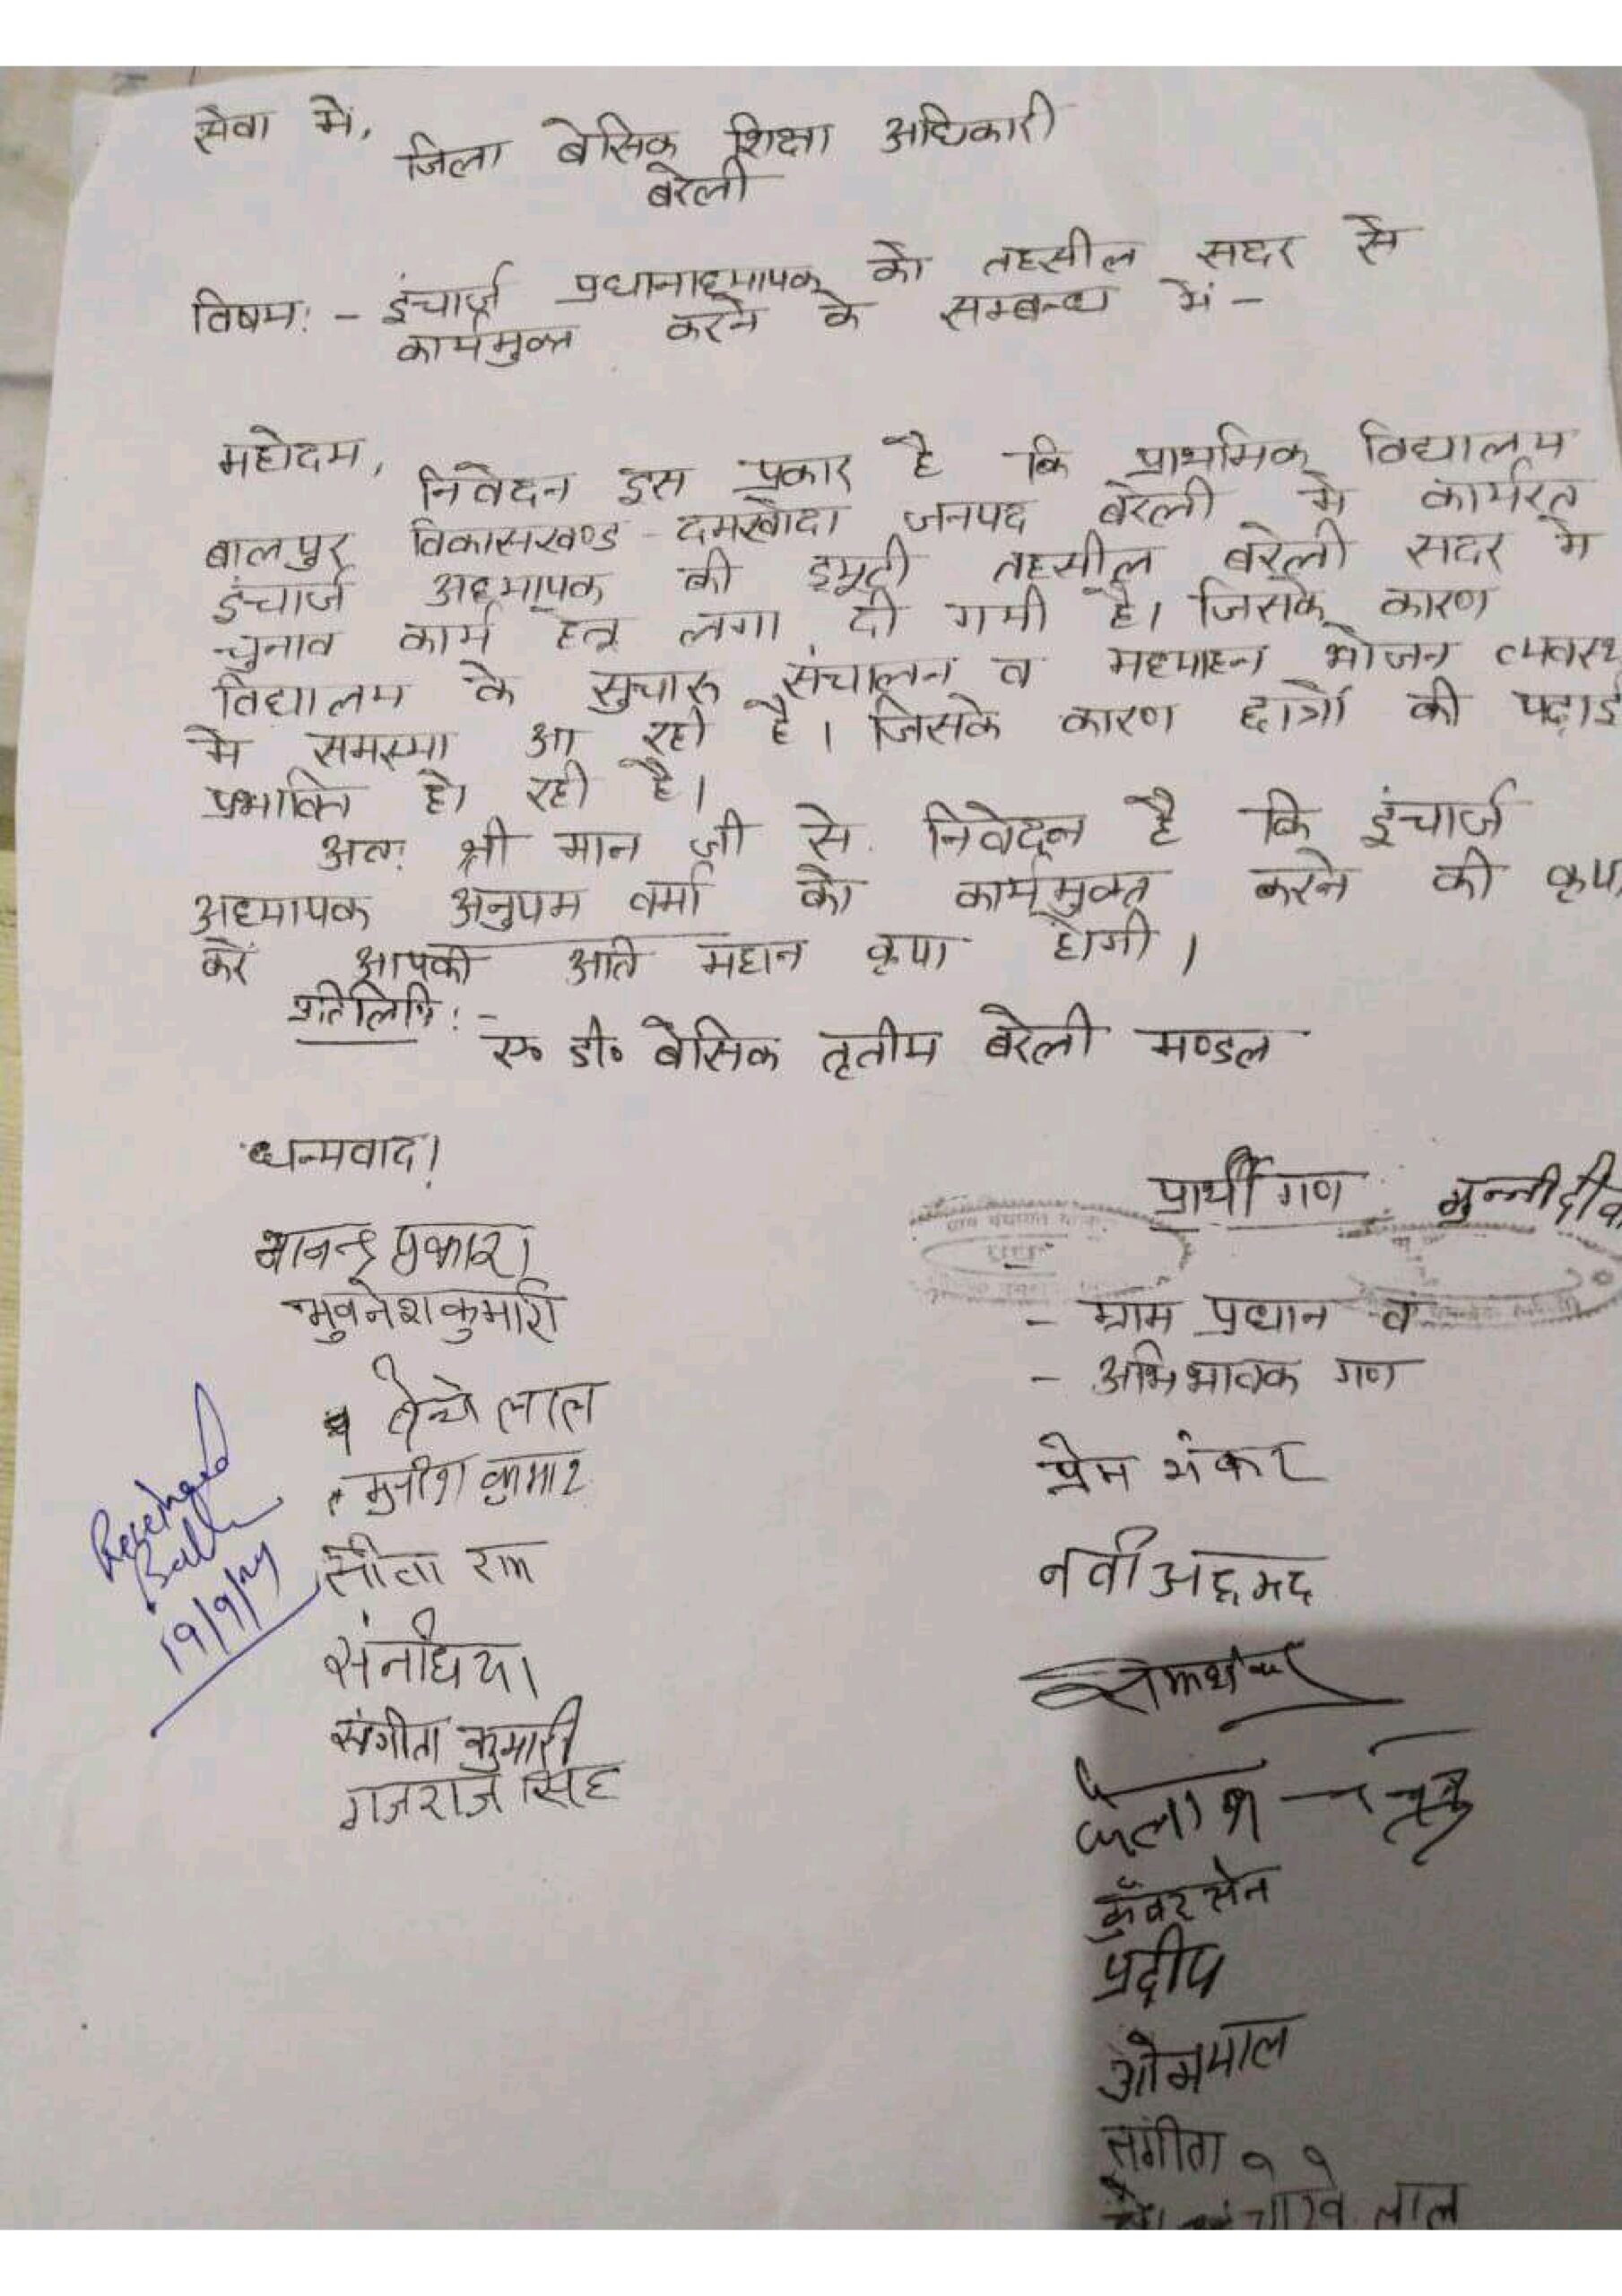 सेवा में,
जिला बेसिक शिक्षा अधिकारी
बरेली
विषय:- इंचार्ज प्रधानाध्यापक को तहसील सदर से
कार्यमुक्त करने के सम्बन्ध में -
महोदय,
निवेदन इस प्रकार है कि प्राथमिक विद्यालय
बालपुर विकासखण्ड - दमखोदा जनपद बरेली मे कार्यरत
इंचार्ज अध्यापक की ड्यूटी तहसील बरेली सदर मे
चुनाव कार्य हेतु लगा दी गयी है। जिसके कारण
विद्यालय के सुचारू संचालन व मध्याहन भोजन व्यवस्थ
मे समस्या आ रही है। जिसके कारण छात्रों की पढ़ाई
प्रभावित हो रही है।
अतः श्री मान जी से निवेदन है कि इंचार्ज
अध्यापक अनुपम वर्मा को कार्यमुक्त करने की कृपा
करें आपकी अति महान कृपा होगी।
प्रतिलिपि:-
ए० डी० बेसिक तृतीय बरेली मण्डल
धन्यवाद!
प्रार्थी गण मुन्नी
प्रकाश
भुवनेश कुमारी
- ग्राम प्रधान व
- अभिभावक गण
लाल
प्रेम शंकर
कुमार
सीता राम
नवी अहमद
संगीता कुमारी
गजराज सिंह
कैलाश
कुँवरसेन
प्रदीप
ओमपाल
संगीता
लाल
19/9/24